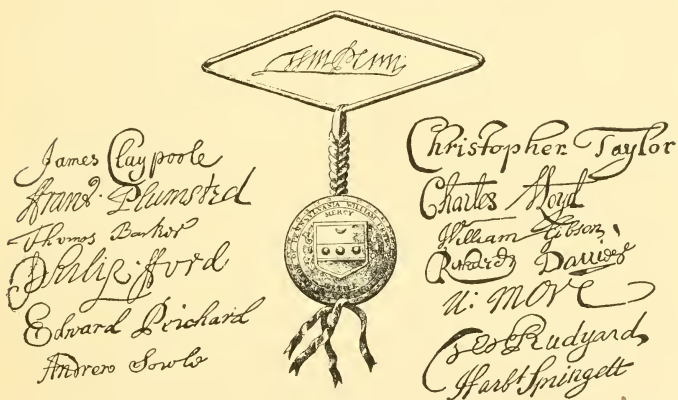 Wm Penn
SYLVANIA WILLIAM
MERCY
James Claypoole
Franc. Plumsted
Thomas Barker
Philip fford
Edward Prichard
Andrew Sowle
Christopher Taylor
Charles Lloyd
William Gibson
Richard Davies
N: More
Rudyard
Harbt Springett